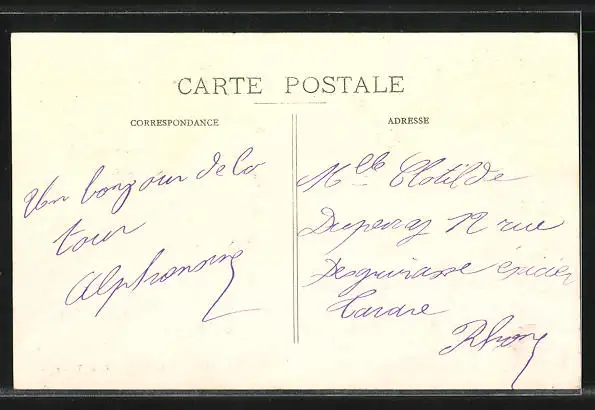 CARTE POSTALE
CORRESPONDANCE
ADRESSE
Un bonjour de la
tour
Alphonsine
Mlle Clotilde
Duperay 12 rue
épicier
Tarare
Rhône